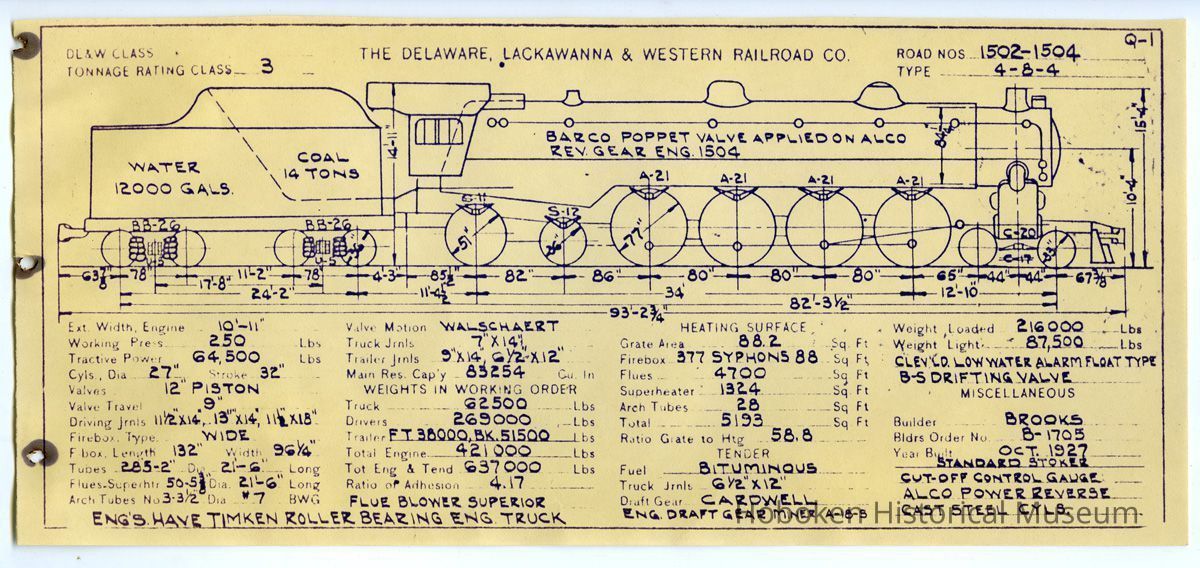 Q-1
DL&W CLASS
TONNAGE RATING CLASS 3
THE DELAWARE, LACKAWANNA & WESTERN RAILROAD CO.
ROAD NOS. 1502-1504
TYPE 4-8-4
WATER
12000 GALS.
COAL
14 TONS
BARCO POPPET VALVE APPLIED ON ALCO
REV. GEAR ENG. 1504
14'-11"
84¼"
15'-4"
10'-4"
BB-26 BB-26
S-12 A-21 A-21 A-21 A-21
C-20
C-17
36" 51" 77"
63⅞ 78" 11'-2" 78" 4'-3" 85½" 82" 86" 80" 80" 80" 65" 44" 44" 67⅞"
17'-8"
24'-2" 11'-4½" 34' 12'-10"
82'-3½"
93'-2¾"
Ext. Width, Engine 10'-11"
Working Press. 250 Lbs
Tractive Power 64,500 Lbs
Cyls., Dia 27" Stroke 32"
Valves 12" PISTON
Valve Travel 9"
Driving Jrnls 11½"X14", 13"X14", 11½"X18"
Firebox, Type WIDE
F'box, Length 132" Width 96¼"
Tubes 285-2" Dia. 21'-6" Long
Flues-Superhtr 50-5½ Dia. 21'-6" Long
Arch Tubes No 3-3½ Dia #7 BWG
ENG'S. HAVE TIMKEN ROLLER BEARING ENG. TRUCK
Valve Motion WALSCHAERT
Truck Jrnls 7"X14"
Trailer Jrnls 9"X14, 6½-X12"
Main Res. Cap'y 83254 Cu. In
WEIGHTS IN WORKING ORDER
Truck 62500 Lbs
Drivers 269000 Lbs
Trailer FT 38000, BK. 51500 Lbs
Total Engine 421000 Lbs
Tot Eng & Tend 637000 Lbs
Ratio of Adhesion 4.17
FLUE BLOWER SUPERIOR
HEATING SURFACE
Grate Area 88.2 Sq Ft
Firebox 377 SYPHONS 88 Sq Ft
Flues 4700 Sq Ft
Superheater 1324 Sq Ft
Arch Tubes 28 Sq Ft
Total 5193 Sq Ft
Ratio Grate to Htg 58.8
TENDER
Fuel BITUMINOUS
Truck Jrnls 6½"X12"
Draft Gear CARDWELL
ENG. DRAFT GEAR MINER A-18-S
Weight Loaded 216000 Lbs
Weight Light 87,500 Lbs
CLEV'CO. LOW WATER ALARM FLOAT TYPE
B-S DRIFTING VALVE
MISCELLANEOUS
Builder BROOKS
Bldrs Order No. B-1705
Year Built OCT. 1927
STANDARD STOKER
CUT-OFF CONTROL GAUGE
ALCO POWER REVERSE
CAST STEEL CYLS.
Hoboken Historical Museum